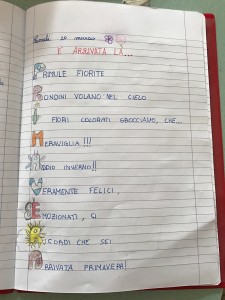 20 marzo
È ARRIVATA LA...
PRIMULE FIORITE
RONDINI VOLANO NEL CIELO
I FIORI COLORATI SBOCCIANO, CHE...
MERAVIGLIA!!!
ADDIO INVERNO!!
VERAMENTE FELICI,
EMOZIONATI, CI
RICORDI CHE SEI
ARRIVATA PRIMAVERA!